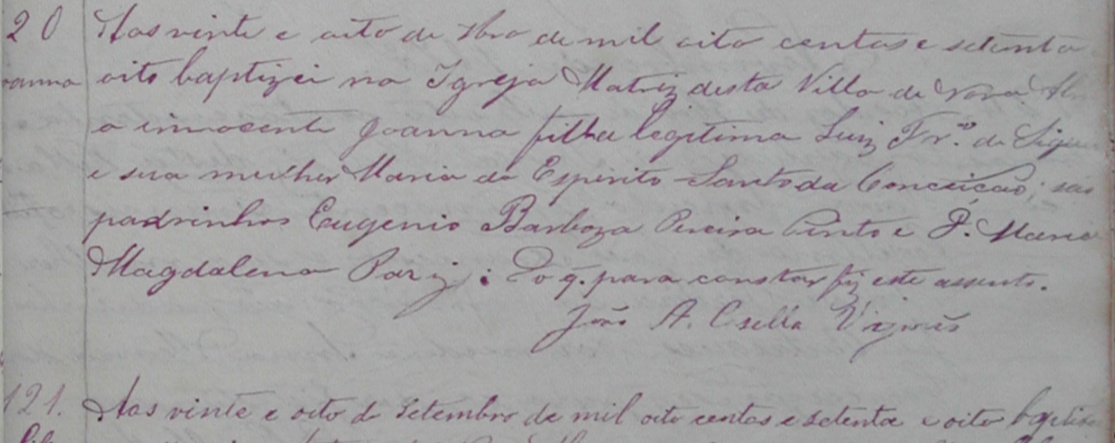 20 Aos vinte e oito de 7bro de mil oito centos e setenta e
oanna oito baptizei na Igreja Matriz desta Villa de Nova Al
a innocente Joanna filha legitima Luiz Fr.co de Siquei
e sua mulher Maria do Espirito Santo da Conceicão; são
padrinhos Eugenio Barboza Pereira Pinto e P. Maria
Magdalena : Do q. para constar fiz este assento.
João A. Vigario
121. Aos vinte e oito de Setembro de mil oito centos e setenta e oito baptise